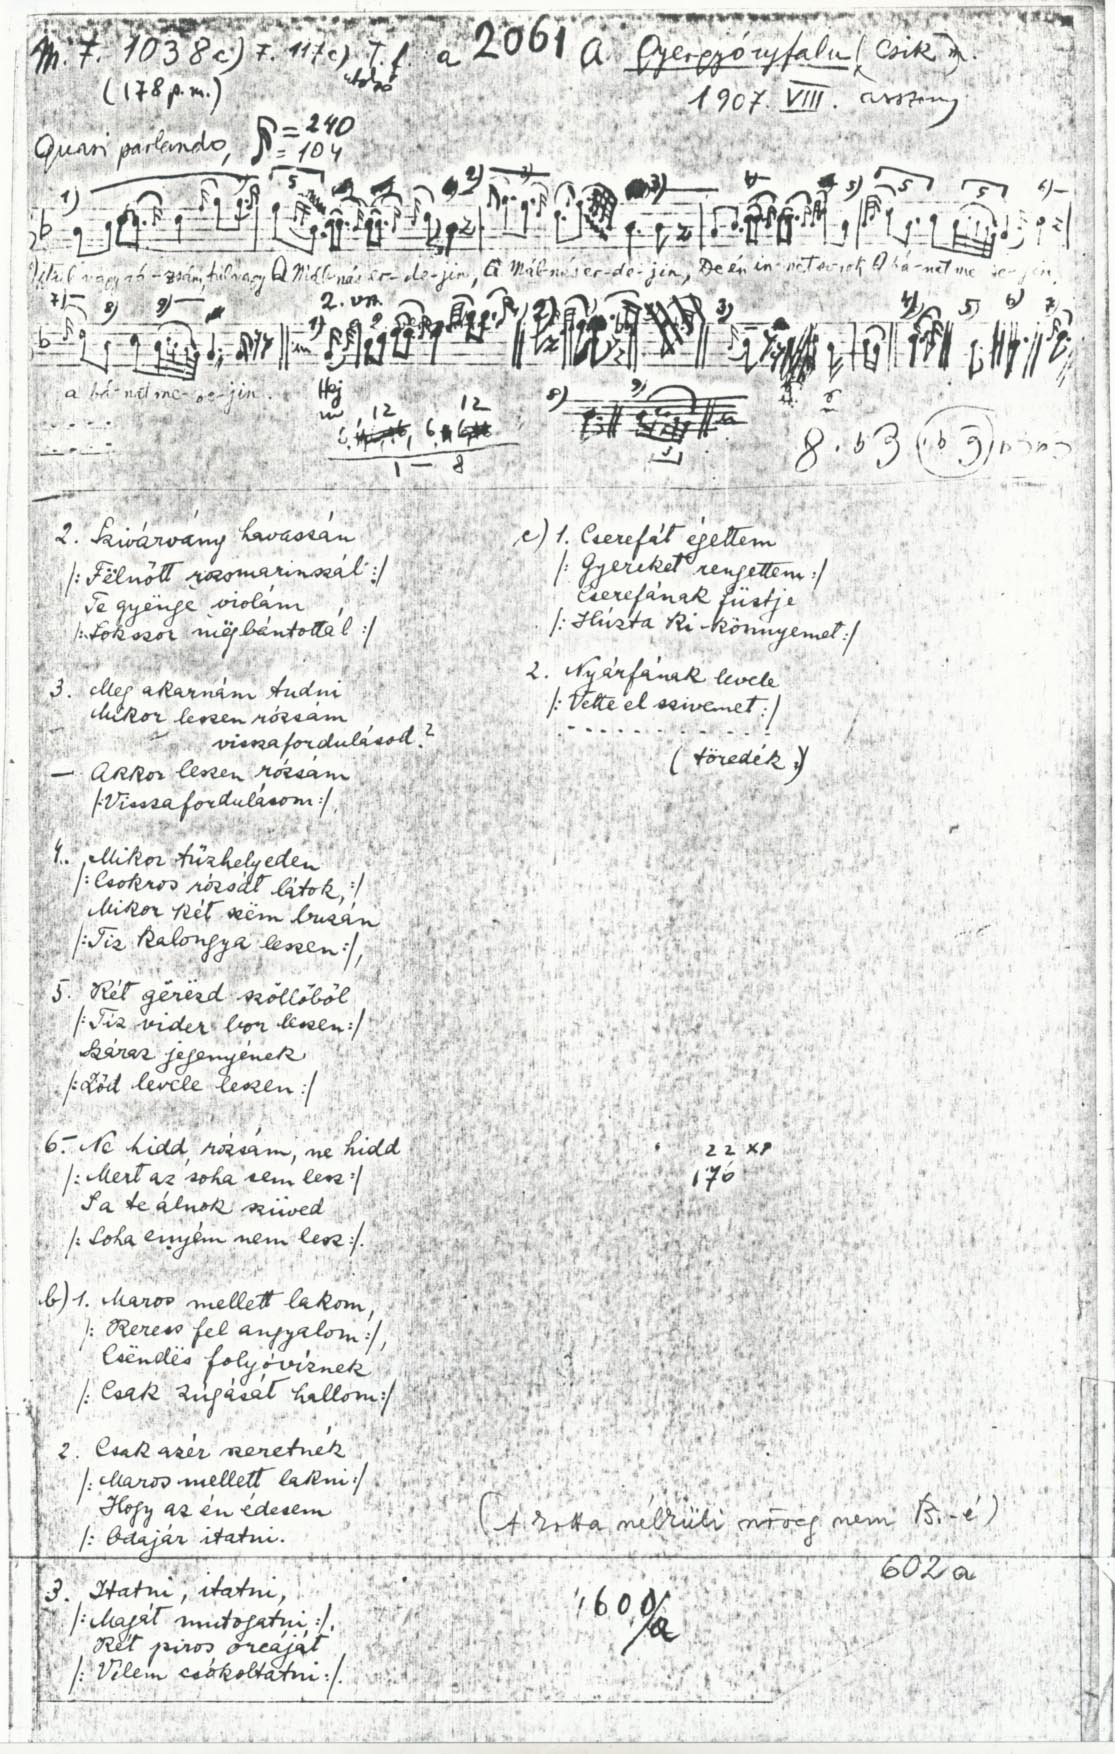 M. F. 1038 c) F. 117 c) T. f. a 2061 A Gyergyóújfalu (Csík m).
(178 p. m.) utolsó
1907. VIII. asszony
Quasi parlando, = 240
= 104
1) 5 2) 3) 4) 5) 5 5 6)
túlnagy A Málnás er-de-jin, A Málnás er-de-jin, De én
7) 8) 9) 2. vsz. 1) 2) 3) 4) 5) 6) 7)
a bá-nat me-ze-jin. Haj
8) 9)
12 12
6, 6
1 — 8
8. b3 (b3)
2. Szivárvány havassán
/: Felnőtt rozomarinszál :/
Te gyënge violám
/: Sokszor mëgbántottál :/
3. Meg akarnám tudni
Mikor leszen rózsám
visszafordulásod?
— Akkor leszen rózsám
/: Visszafordulásom :/.
4. Mikor tűzhelyeden
/: Csokros rózsát látok, :/
Mikor két szëm buzán
/: Tiz kalongya leszen :/,
5. Két gërëzd szőllőből
/: Tiz vider bor leszen :/
Száraz jegenyének
/: Zöd levele leszen :/
6. Ne hidd, rózsám, ne hidd
/: Mert az soha sem lesz :/
S a te álnok szüved
/: Soha enyém nem lesz :/.
b) 1. Maros mellett lakom,
/: Keress fel angyalom :/,
Csëndës folyóvíznek
/: Csak zúgását hallom :/
2. Csak azér szeretnék
/: Maros mellett lakni :/
Hogy az én édesem
/: Odajár itatni.
3. Itatni, itatni,
/: Magát mutogatni :/,
Két piros orcáját
/: Vélem csókoltatni :/.
c) 1. Cserefát égettem
/: Gyereket rengettem :/
Cserefának füstje
/: Húzta ki könnyemet :/
2. Nyárfának levele
/: Vette el szivemet :/
. . . . . . . . . .
(töredék)
22 XP
176
(A kotta nélküli szöveg nem B.-é)
602 a
1600/a